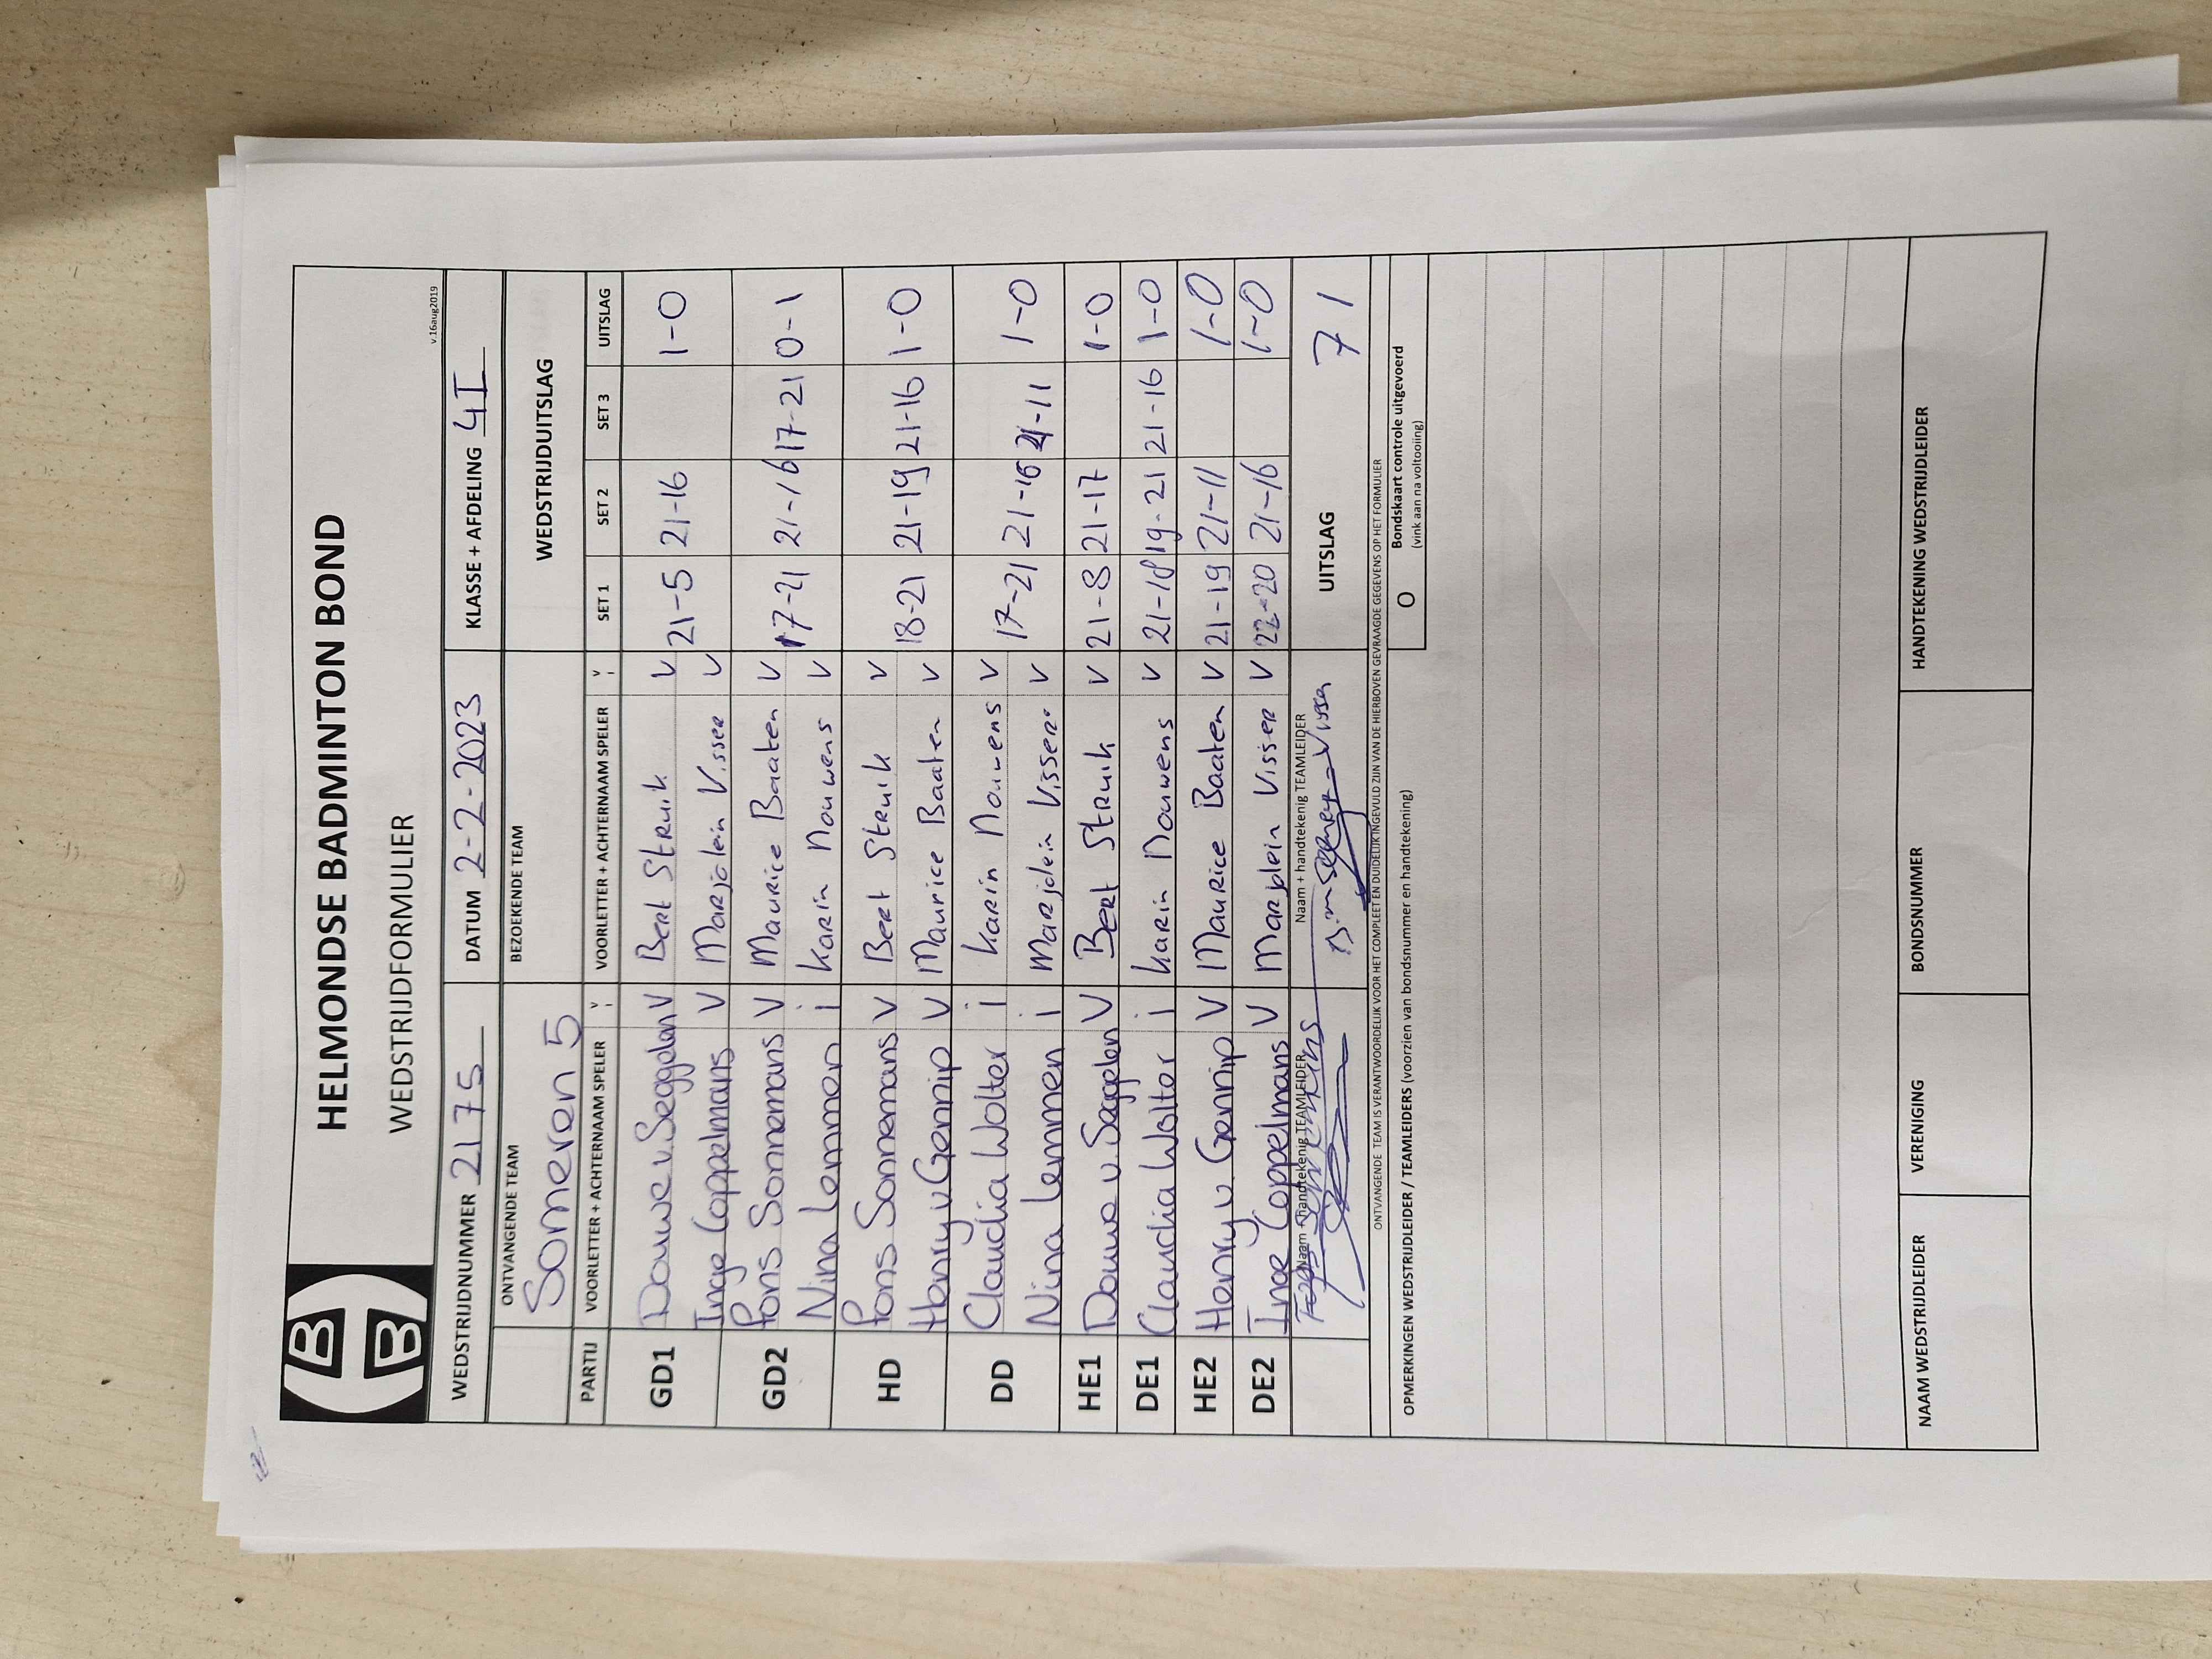 HELMONDSE BADMINTON BOND
WEDSTRIJDFORMULIER
v.16aug2019
WEDSTRIJDNUMMER 2175 DATUM 2-2-2023 KLASSE + AFDELING 4I
ONTVANGENDE TEAM BEZOEKENDE TEAM WEDSTRIJDUITSLAG
Someren 5
PARTIJ VOORLETTER + ACHTERNAAM SPELER V I VOORLETTER + ACHTERNAAM SPELER V I SET 1 SET 2 SET 3 UITSLAG
GD1 Douwe v. Seggelen V Bert Struik V 21-5 21-16 1-0
Inge Coppelmans V Marjolein Visser V
GD2 Fons Sonnemans V Maurice Baaten V 17-21 21-16 17-21 0-1
Nina Lemmen i Karin Nouwens V
HD Fons Sonnemans V Bert Struik V 18-21 21-19 21-16 1-0
Henry v Gennip V Maurice Baaten V
DD Claudia Wolter i Karin Nouwens V 17-21 21-16 21-11 1-0
Nina Lemmen i Marjolein Visser V
HE1 Douwe v. Seggelen V Bert Struik V 21-8 21-17 1-0
DE1 Claudia Wolter i Karin Nouwens V 21-18 19-21 21-16 1-0
HE2 Henry v. Gennip V Maurice Baaten V 21-19 21-11 1-0
DE2 Inge Coppelmans V Marjolein Visser V 22-20 21-16 1-0
Naam + handtekenig TEAMLEIDER Naam + handtekenig TEAMLEIDER UITSLAG 7 1
Visser
ONTVANGENDE TEAM IS VERANTWOORDELIJK VOOR HET COMPLEET EN DUIDELIJK INGEVULD ZIJN VAN DE HIERBOVEN GEVRAAGDE GEGEVENS OP HET FORMULIER
OPMERKINGEN WEDSTRIJDLEIDER / TEAMLEIDERS (voorzien van bondsnummer en handtekening)
O Bondskaart controle uitgevoerd
(vink aan na voltooiing)
NAAM WEDSTRIJDLEIDER VERENIGING BONDSNUMMER HANDTEKENING WEDSTRIJDLEIDER